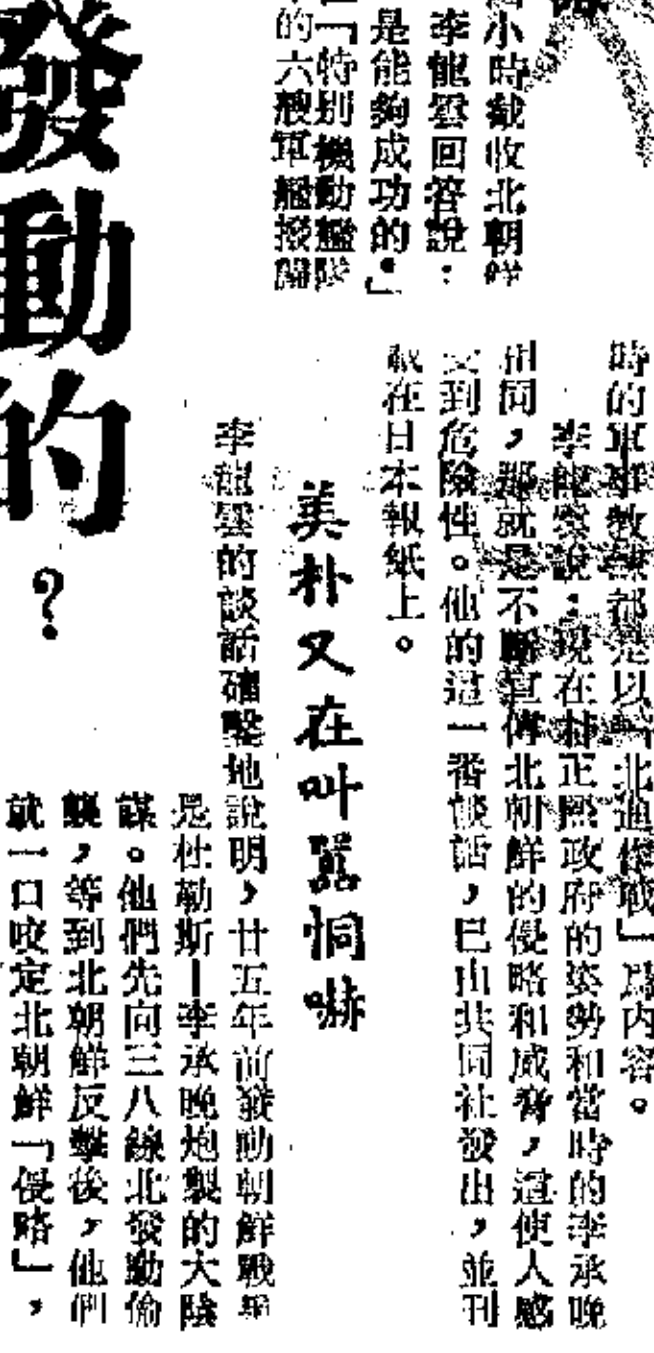 小時截收北朝鮮
李龍雲回答說：
是能夠成功的。」
「特别機動艦隊
的六艘軍艦撥歸
發動的？
時的軍事教練都是以「北進作戰」爲内容。
李龍雲說：現在朴正熙政府的姿勢和當時的李承晚
相同，那就是不斷宣傳北朝鮮的侵略和威脅，這使人感
到危險性。他的這一番談話，已由共同社發出，並刊
在日本報紙上。
美朴又在叫囂恫嚇
李龍雲的談話確鑿地說明，廿五年前發動朝鮮戰爭
是杜勒斯—李承晚炮製的大陰
謀。他們先向三八線北發動偷
襲，等到北朝鮮反擊後，他們
就一口咬定北朝鮮「侵略」，